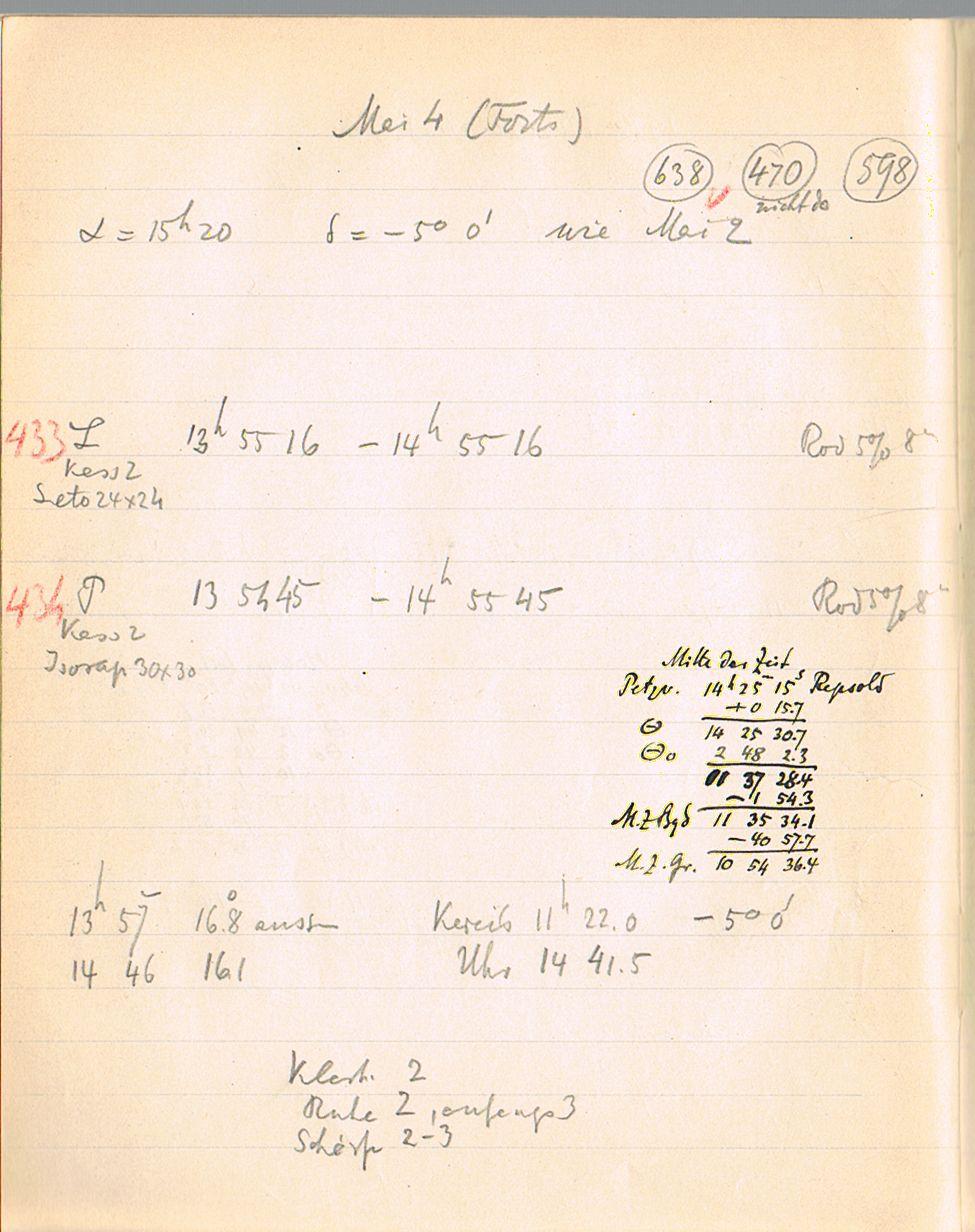 Mai 4 (Forts)
638 470 598
nicht da
α = 15h 20 δ = -5° 0' wie Mai 2
433 L 13h 55 16 - 14h 55 16 Rod 5% 8m
Kass 2
Leto 24x24
434 P 13 54 45 - 14h 55 45 Rod 5% 8m
Kass 2
Isorap 30x30
Mitte der Zeit
Petzv. 14h 25m 15s Repsold
+0 15.7
Θ 14 25 30.7
Θ0 2 48 2.3
11 37 28.4
-1 54.3
M.Z. Bgd 11 35 34.1
-40 57.7
M.Z. Gr. 10 54 36.4
13h 57m 16.8° aussen Kreis 11h 22.0 -5° 0'
14 46 16.1 Uhr 14 41.5
Klarh. 2
Ruhe 2, anfangs 3
Schärfe 2-3